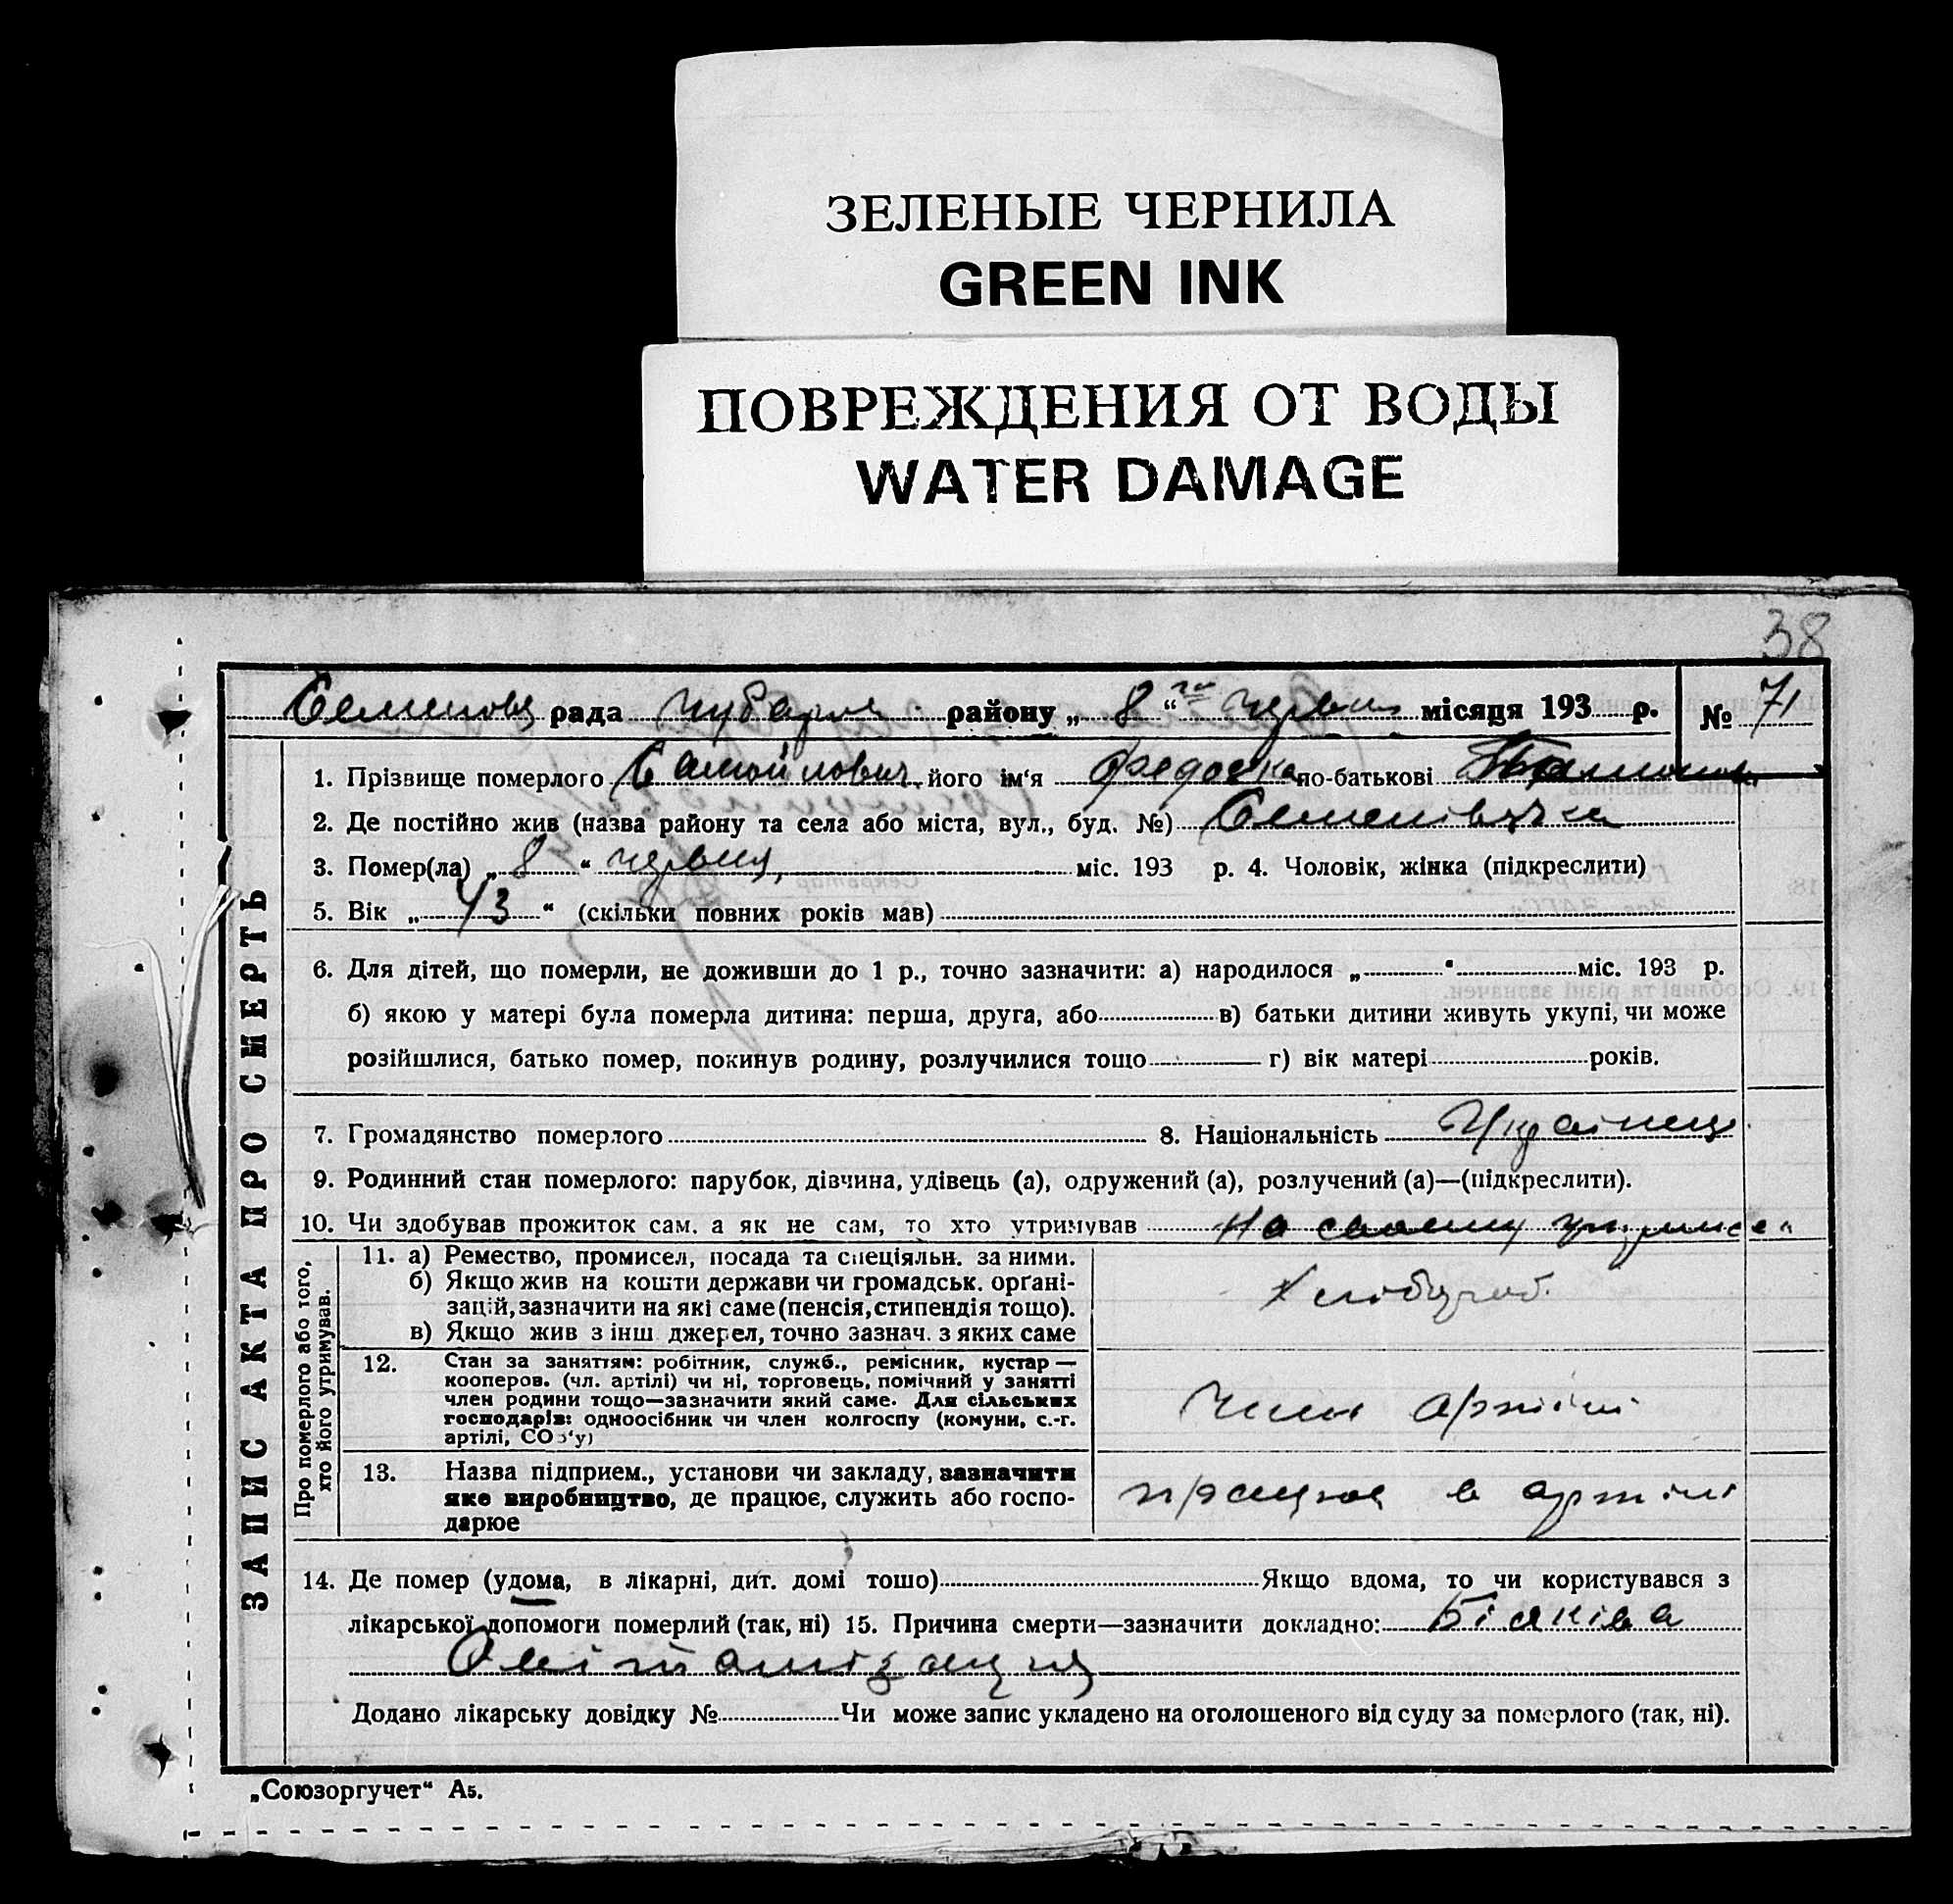 ЗЕЛЕНЫЕ ЧЕРНИЛА
GREEN INK
ПОВРЕЖДЕНИЯ ОТ ВОДЫ
WATER DAMAGE
38
рада района „ 8 “ червня місяця 193 р. № 71
1. Прізвище померлого Самойлович його ім'я Федоска по-батькові
2. Де постійно жив (назва району та села або міста, вул., буд. №) Семенівка
3. Помер(ла) „ 8 “ червня, міс. 193 р. 4. Чоловік, жінка (підкреслити)
5. Вік „ 43 “ (скільки повних років мав)
6. Для дітей, що померли, не доживши до 1 р., точно зазначити: а) народилося „ “ міс. 193 р.
б) якою у матері була померла дитина: перша, друга, або в) батьки дитини живуть укупі, чи може
розійшлися, батько помер, покинув родину, розлучилися тощо г) вік матері років.
7. Громадянство померлого 8. Національність Українец
9. Родинний стан померлого: парубок, дівчина, удівець (а), одружений (а), розлучений (а)—(підкреслити).
10. Чи здобував прожиток сам, а як не сам, то хто утримував На своему
Про померлого або того, хто його утримував.
11. а) Ремество, промисел, посада та спеціяльн. за ними.
б) Якщо жив на кошти держави чи громадськ. орґані-
зацій, зазначити на які саме (пенсія, стипендія тощо).
в) Якщо жив з інш джерел, точно зазнач. з яких саме
Хлібороб.
12. Стан за заняттям: робітник, служб., ремісник, кустар—
кооперов. (чл. артілі) чи ні, торговець, помічний у занятті
член родини тощо—зазначити який саме. Для сільських
господарів: одноосібник чи член колгоспу (комуни, с.-г.
артілі, СОЗ'у)
Член артілі
13. Назва підприєм., установи чи закладу, зазначити
яке виробництво, де працює, служить або госпо-
дарює
працював в артілі
14. Де помер (удома, в лікарні, дит. домі тощо) Якщо вдома, то чи користувався з
лікарської допомоги померлий (так, ні) 15. Причина смерти—зазначити докладно: Білкова
Додано лікарську довідку № Чи може запис укладено на оголошеного від суду за померлого (так, ні).
ЗАПИС АКТА ПРО СМЕРТЬ
„Союзоргучет“ А5.